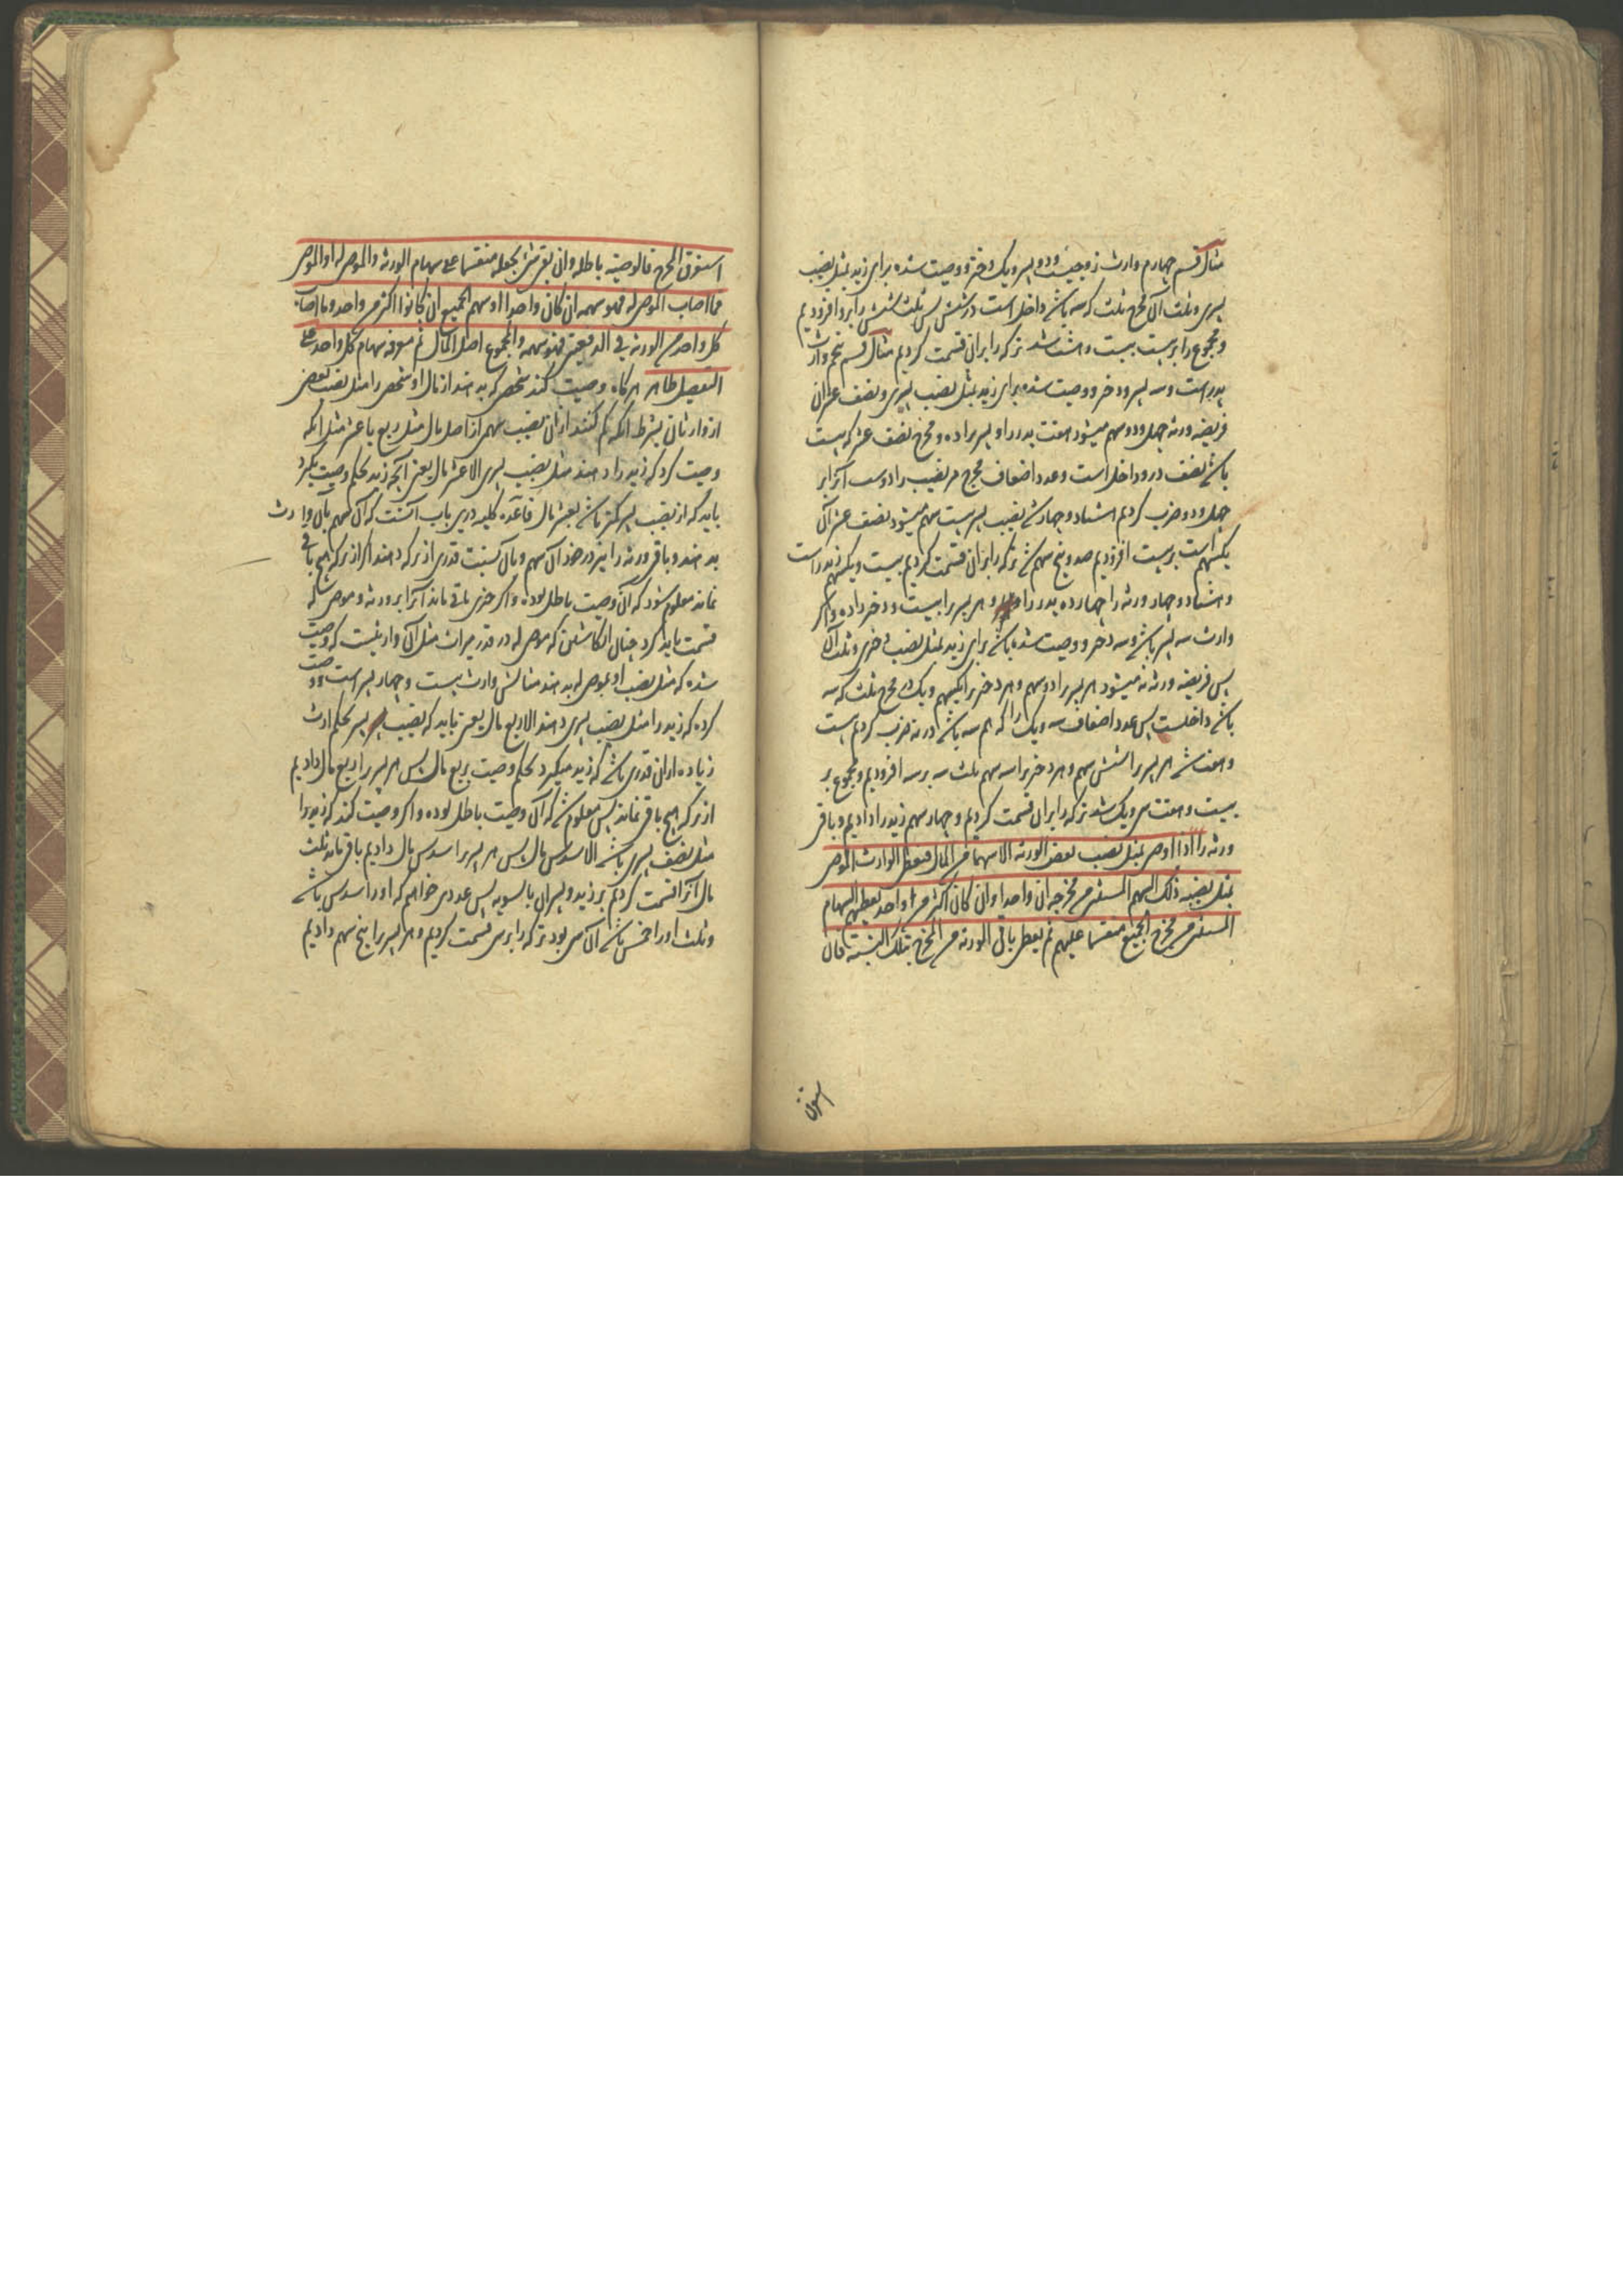 مثال قسم چهارم وارث زوجیست و دو پسر و یک دختر و وصیت شده برای زید بمثل نصیب
پسری و ثلث آن مخرج ثلث که سه باشد داخل است در شش پس ثلث شش را برو افزودیم
و مجموع را بر بیست بیست و هشت شد ترکه را بران قسمت کردیم مثال قسم پنجم وارث
پدر است و سه پسر و دختر و وصیت شده برای زید بمثل نصیب پسری و نصف عشر آن
فریضه ورثه چهل و دو سهم میشود هفت پدر را و پسر را ده و مخرج نصف عشر که بیست
باشد نصف درو داخل است و عدد اضعاف مخرج هر نصیب را دوست آنرا بر
چهل و دو ضرب کردیم هشتاد و چهار شد نصیب پسر بیست سهم میشود نصف عشر آن
یکسهم است بر بیست افزودیم صد و پنج سهم شد ترکه را بران قسمت کردیم بیست و یکسهم زید راست
و هشتاد و چهار ورثه را چهارده پدر را و هر پسر را بیست و دختر را ده و اگر
وارث سه پسر باشد و سه دختر و وصیت شده باشد برای زید بمثل نصیب دختری و ثلث آن
پس فریضه ورثه نه میشود هر پسر را دو سهم و هر دختر را یکسهم و یک در مخرج ثلث که سه
باشد داخلست پس عدد اضعاف سه و یک را که هم سه باشد در نه ضرب کردیم بیست
و هفت شد هر پسر را شش سهم و هر دختر را سه سهم ثلث سه بر سه افزودیم و مجموع بر
بیست و هفت سی و یک شد ترکه را بران قسمت کردیم و چهار سهم زید را دادیم و باقی
ورثه را اذا اوصی بمثل نصیب بعض الورثه الا سهما من المال فیعطی الوارث الموصی
بمثل نصیبه ذلک السهم المستثنی من مخرجه ان واحدا وان کان اکثر من واحد یعطیهم السهام
المستثنی من مخرج الجمیع منقسما علیهم ثم یعطی باقی الورثه من المخرج بتلک النسبة فان
استغرق
استغرق المخرج فالوصیة باطله وان بقی شئ یجعله منقسما علی سهام الورثه والموصی له او الموصی
فما اصاب الموصی له فهو سهمه ان کان واحدا او سهم الجمیع ان کانوا اکثر من واحد وما اصاب
کل واحد من الورثه فی الدفعتین فهو سهمه والمجموع اصل المال ثم معرفه سهام کل واحد علی
التفصیل ظاهر هرگاه وصیت کند شخصی که بدهند از مال او شخصی را مثل نصیب بعضی
از وارثان بشرط آنکه کم کنند ازان نصیب سهمی از اصل مال مثل ربع یا عشر مثل آنکه
وصیت کرد که زید را دهند مثل نصیب پسری الا عشر مال یعنی آنچه زید بحکم وصیت بگیرد
باید که از نصیب پسر کمتر باشد بعشر مال قاعده کلیه درین باب آنست که آن سهم بآن وارث
بدهند و باقی ورثه را نیز در خور آن سهم و بآن نسبت قدری از ترکه دهند اگر از ترکه هیچ باقی
نماند معلوم شود که آن وصیت باطل بوده و اگر چیزی باقی ماند آنرا بر ورثه و موصی له
قسمت باید کرد چنان انکاشتن که موصی له در قدر میراث مثل آن وارثیست که وصیت
شده که مثل نصیب او بموصی له بدهند مثالش وارث بیست و چهار پسر است وصیت
کرده که زید را مثل نصیب پسری دهند الا ربع مال یعنی باید که نصیب پسر بحکم ارث
زیاده ازان قدری باشد که زید میگیرد بحکم وصیت بربع مال پس هر پسر را ربع مال دادیم
از ترکه هیچ باقی نماند پس معلوم شد که آن وصیت باطل بوده و اگر وصیت کند که زید را
مثل نصیب پسری باشد الا سدس مال پس هر پسر را سدس مال دادیم باقی ماند ثلث
مال آنرا قسمت کردیم بر زید و پسران بالسویه پس عددی خواهیم که او را سدس باشد
و ثلث او را خمس باشد آن سی بود ترکه را بر سی قسمت کردیم و هر پسر را پنج سهم دادیم